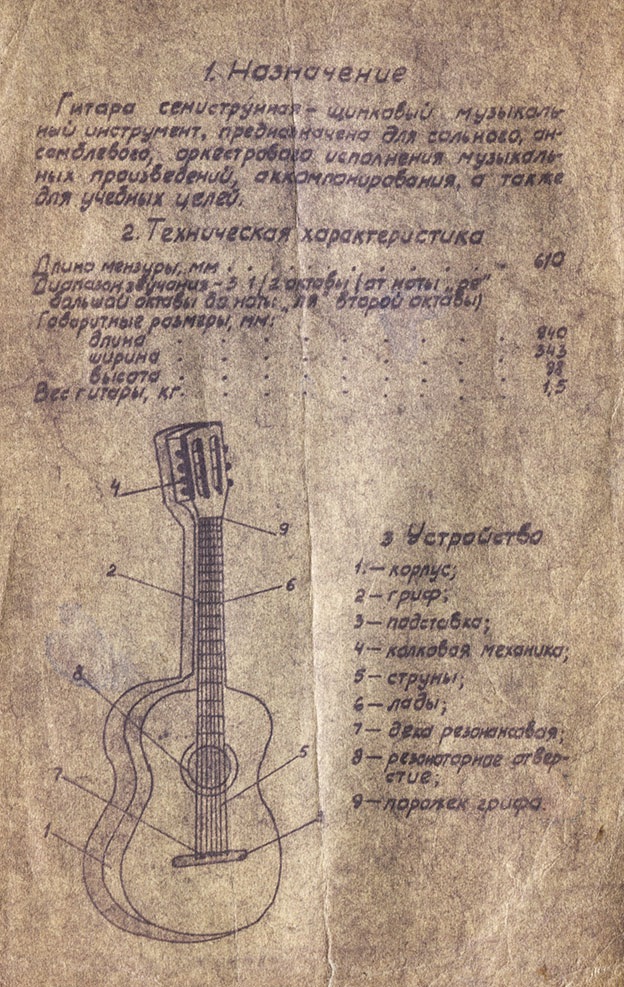 1. Назначение
Гитара семиструнная – щипковый музыкаль-
ный инструмент, предназначена для сольного, ан-
самблевого, оркестрового исполнения музыкаль-
ных произведений, аккомпанирования, а также
для учебных целей.
2. Техническая характеристика
Длина мензуры, мм . . . . . . . . . 610
Диапазон звучания – 3 1/2 октавы (от ноты „ре"
большой октавы до ноты „ля" второй октавы)
Габаритные размеры, мм:
длина . . . . . . . . . . 940
ширина . . . . . . . . . . 343
высота . . . . . . . . . . 98
Вес гитары, кг. . . . . . . . . . 1,5
4
9
2
6
8
7
5
1
3 Устройство
1. – корпус;
2 – гриф;
3 – подставка;
4 – колковая механика;
5 – струны;
6 – лады;
7 – дека резонансовая;
8 – резонаторное отвер-
стие;
9 – порожек грифа.